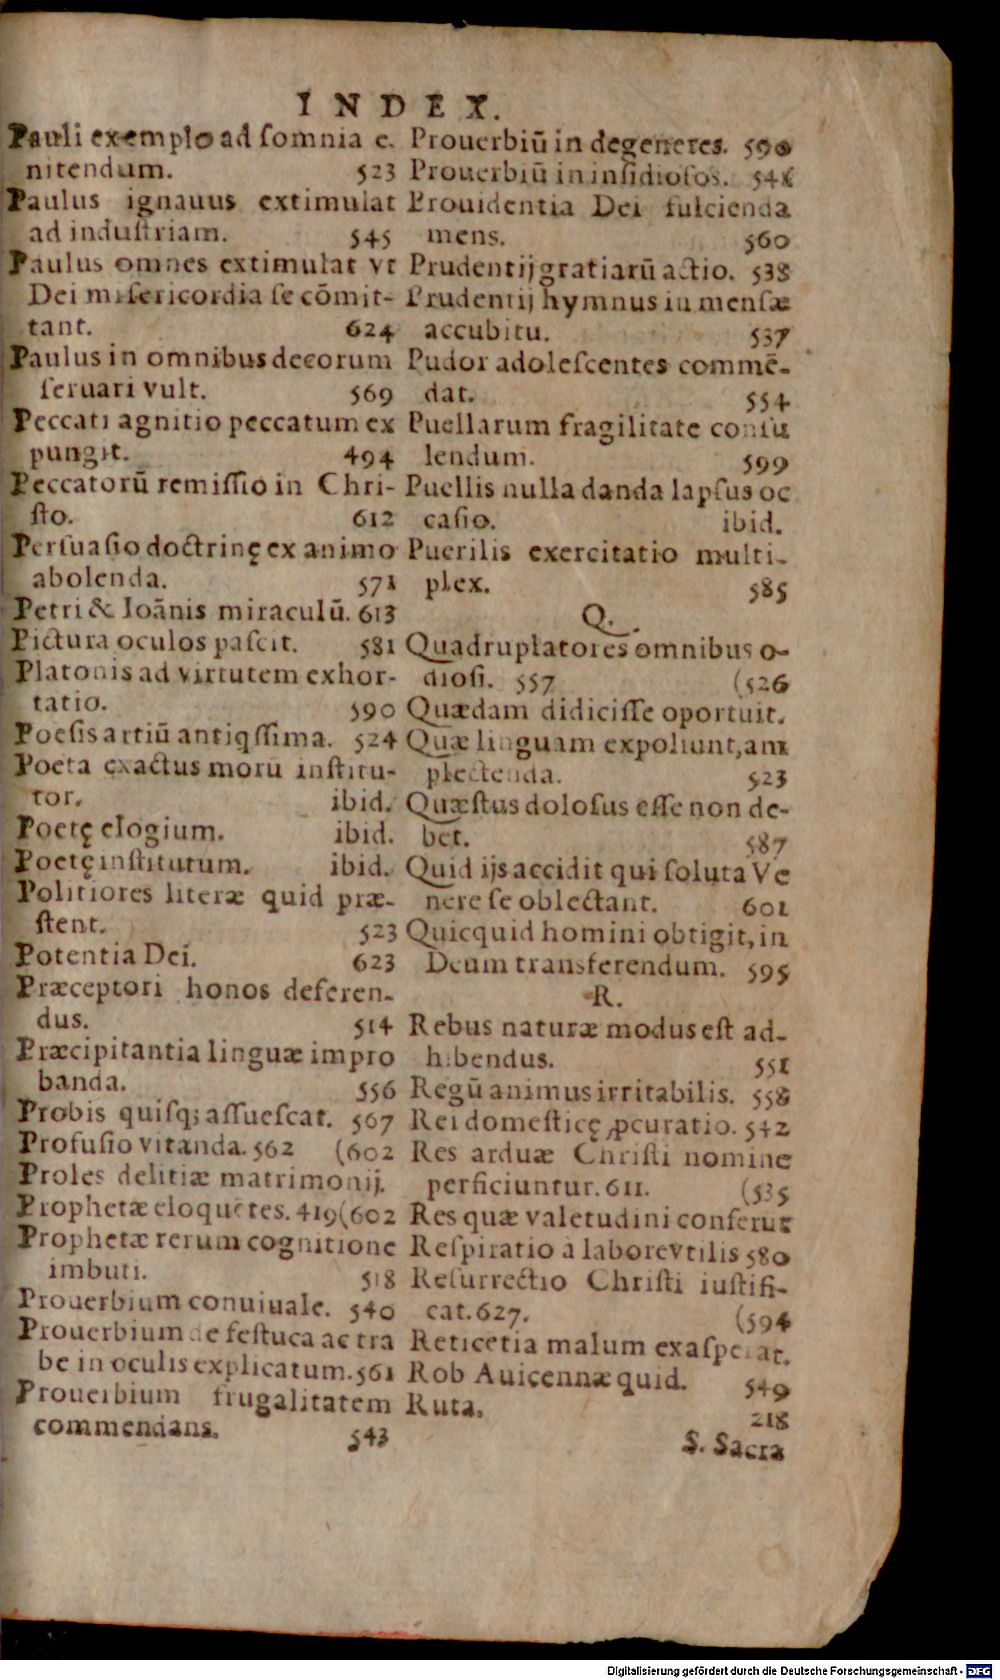 INDEX.
Pauli exemplo ad ſomnia e.
nitendum. 523
Paulus ignauus extimulat
ad induſtriam. 545
Paulus omnes extimulat vt
Dei miſericordia ſe cõmit-
tant. 624
Paulus in omnibus decorum
ſeruari vult. 569
Peccati agnitio peccatum ex
pungit. 494
Peccatorũ remiſſio in Chri-
ſto. 612
Perſuaſio doctrinę ex animo
abolenda. 571
Petri & Ioãnis miraculũ. 613
Pictura oculos paſcit. 581
Platonis ad virtutem exhor-
tatio. 590
Poeſis artiũ antiqſſima. 524
Poeta exactus morũ inſtitu-
tor. ibid.
Poetę elogium. ibid.
Poetę inſtitutum. ibid.
Politiores literæ quid præ-
ſtent. 523
Potentia Dei. 623
Præceptori honos deferen-
dus. 514
Præcipitantia linguæ impro
banda. 556
Probis quiſq; aſſueſcat. 567
Profuſio vitanda. 562 (602
Proles delitiæ matrimonij.
Prophetæ eloquẽtes. 419 (602
Prophetæ rerum cognitione
imbuti. 518
Prouerbium conuiuale. 540
Prouerbium de feſtuca ac tra
be in oculis explicatum. 561
Prouerbium frugalitatem
commendans. 543
Prouerbiũ in degeneres. 590
Prouerbiũ in inſidioſos. 541
Prouidentia Dei fulcienda
mens. 560
Prudentij gratiarũ actio. 538
Prudentij hymnus in menſæ
accubitu. 537
Pudor adoleſcentes commẽ-
dat. 554
Puellarum fragilitate conſu
lendum. 599
Puellis nulla danda lapſus oc
caſio. ibid.
Puerilis exercitatio multi-
plex. 585
Q.
Quadruplatores omnibus o-
dioſi. 557 (526
Quædam didiciſſe oportuit.
Quæ linguam expoliunt, am
plectenda. 523
Quæſtus doloſus eſſe non de-
bet. 587
Quid ijs accidit qui ſoluta Ve
nere ſe oblectant. 601
Quicquid homini obtigit, in
Deum transferendum. 595
R.
Rebus naturæ modus eſt ad-
hibendus. 551
Regũ animus irritabilis. 558
Rei domeſticę ꝓcuratio. 542
Res arduæ Chriſti nomine
perficiuntur. 611. (535
Res quæ valetudini conferũt
Reſpiratio à labore vtilis 580
Reſurrectio Chriſti iuſtifi-
cat. 627. (594
Reticẽtia malum exaſperat.
Rob Auicennæ quid. 549
Ruta. 218
S. Sacra
Digitalisierung gefördert durch die Deutsche Forschungsgemeinschaft - DFG